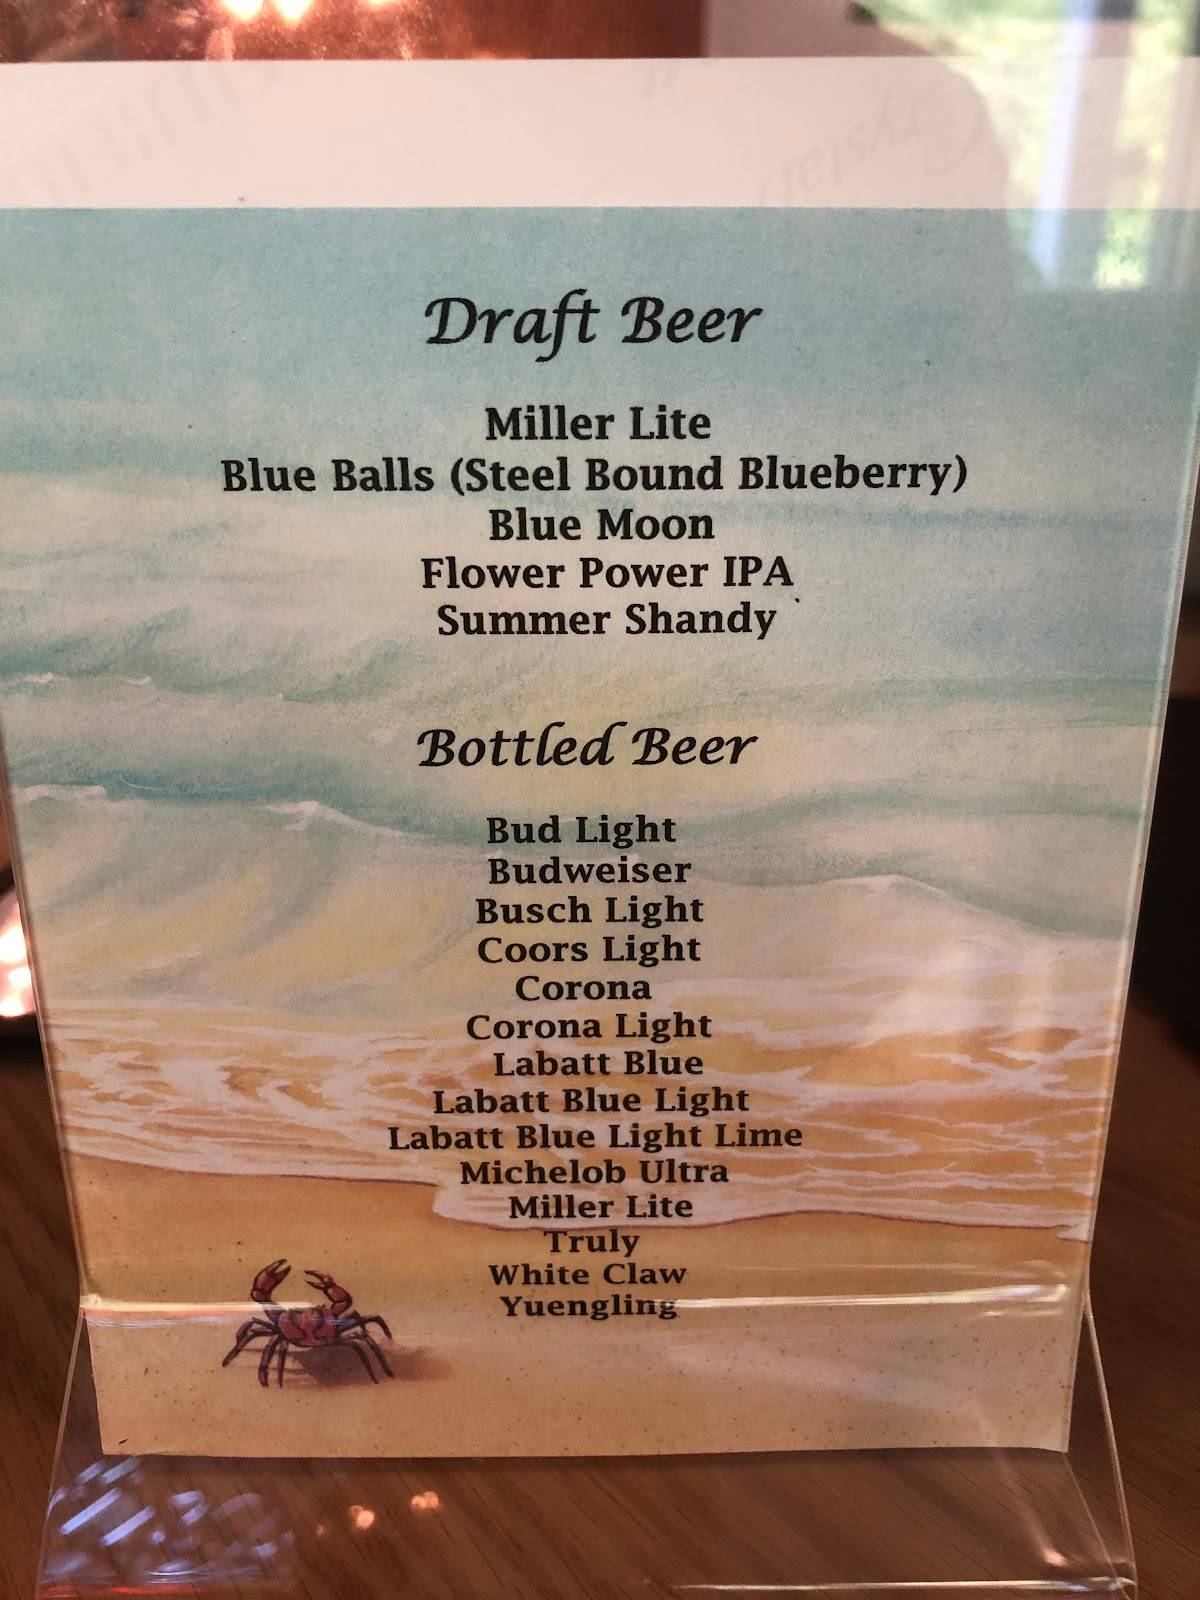 Crystal
Draft Beer
Miller Lite
Blue Balls (Steel Bound Blueberry)
Blue Moon
Flower Power IPA
Summer Shandy
Bottled Beer
Bud Light
Budweiser
Busch Light
Coors Light
Corona
Corona Light
Labatt Blue
Labatt Blue Light
Labatt Blue Light Lime
Michelob Ultra
Miller Lite
Truly
White Claw
Yuengling